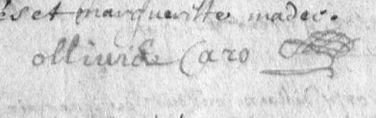 et margueritte madec.
ollivier Caro